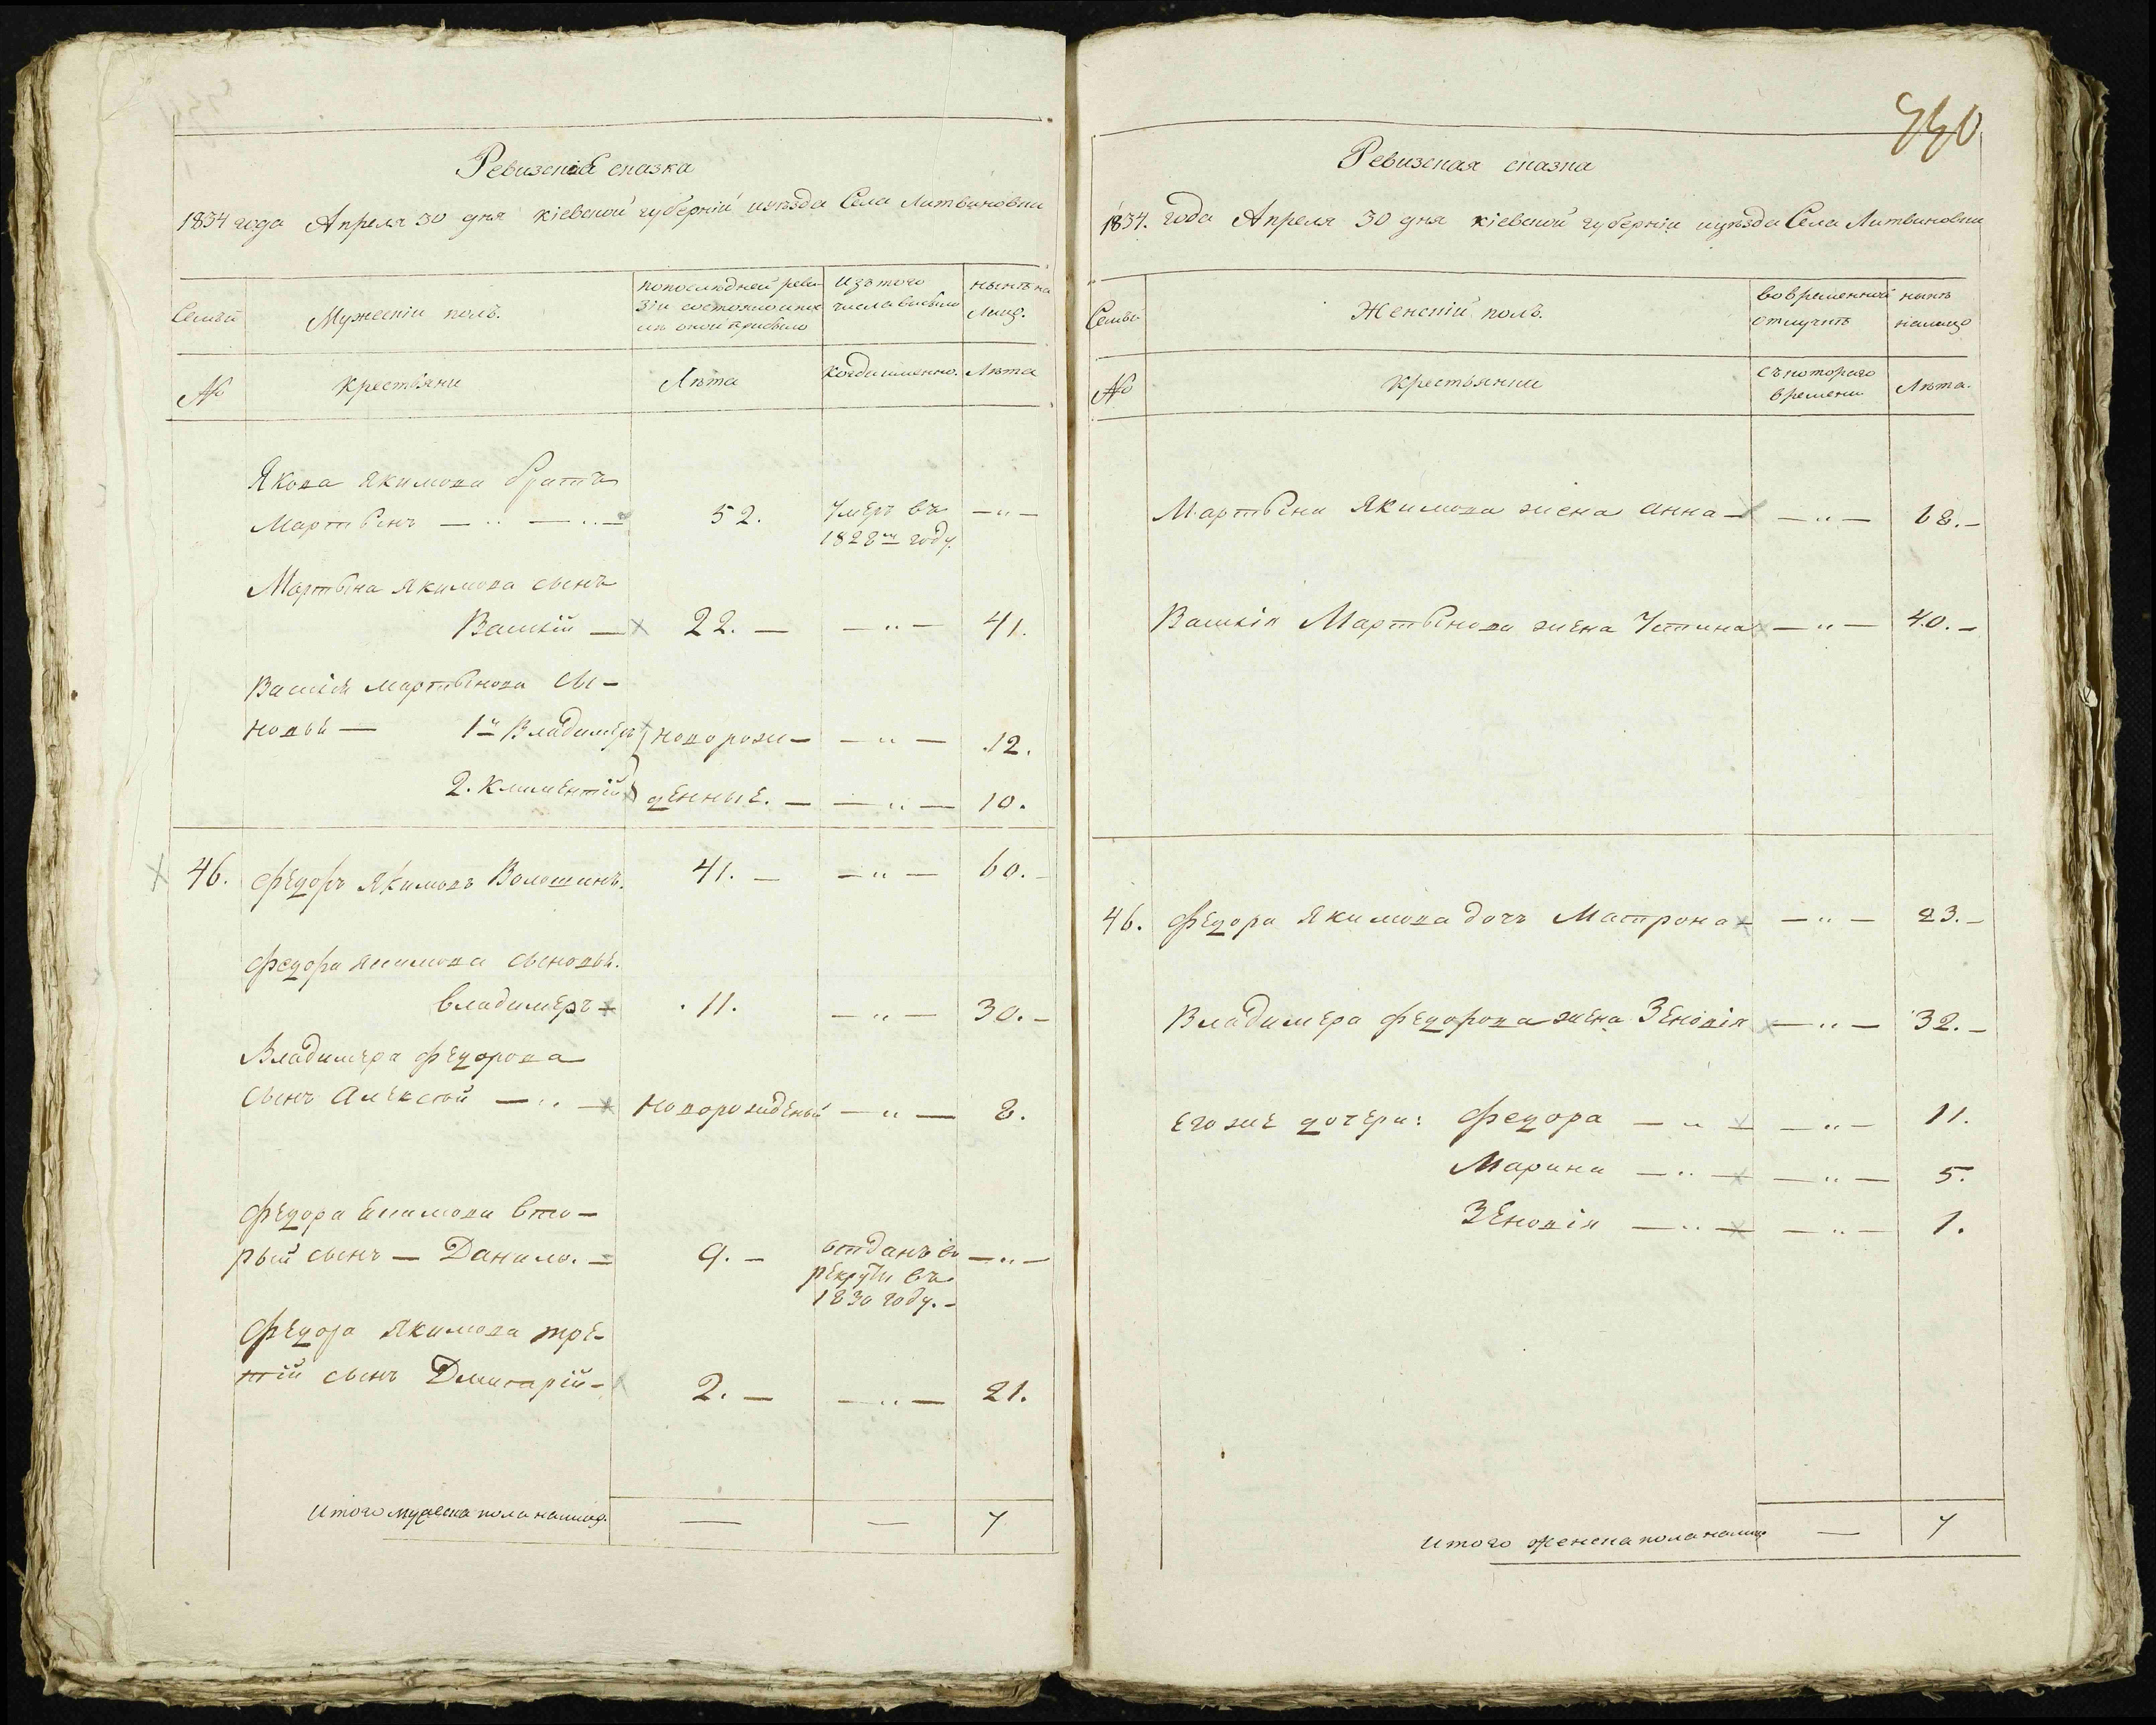 Ревизская сказка
1834 года Апреля 30 дня Кіевской губерніи уѣзда Села Литвиновки
Семьи
Мужескій полъ.
попоследней реви-
зіи состояло или
изъ того
числа выбыло
нынѣ на
лицо.
№
Крестьяни
Лѣта
Когда именно.
Лѣта
Якова Якимова братъ
Мартынъ — „ — „ —
52.
Умеръ въ
1828м году.
— „ —
Мартына Якимова сынъ
Василій — 22. — — „ — 41.
Василія Мартынова сы-
новья — 1й Владимеръ новорож- — „ — 12.
2. Климентій денные. — — „ — 10.
46. Федоръ Якимовъ Волошинъ. 41. — — „ — 60. -
Федора Якимова сыновья.
Владимеръ - 11. — „ — 30. -
Владимера Федорова
сынъ Алексѣй — „ — новорожденый — „ — 8.
Федора Якимова вто-
рый сынъ — Данило. = 9. - отданъ въ — „ —
рекруты въ
1830 году. -
Федора Якимова тре-
тій сынъ Дмитрій - 2. — — „ — 21.
Итого мужеска пола налицо. — — 7
440
Ревизская сказка
1834. года Апреля 30 дня Кіевской губерніи уѣзда Села Литвиновки
Семьи
Женскій полъ.
вовременной
отлучкѣ
нынѣ
налицо
№
Крестьянки
съ котораго
времени
Лѣта.
Мартына Якимова жена Анна — „ — 68. -
Василія Мартынова жена Устина — „ — 40. -
46. Федора Якимова дочь Матрона - — „ — 23. -
Владимера Федорова жена Зеновія — „ — 32. -
Его же дочери: Федора — „ — — „ — 11.
Марина — „ — — „ — 5.
Зеновія — „ — — „ — 1.
Итого женска пола налицо — 7